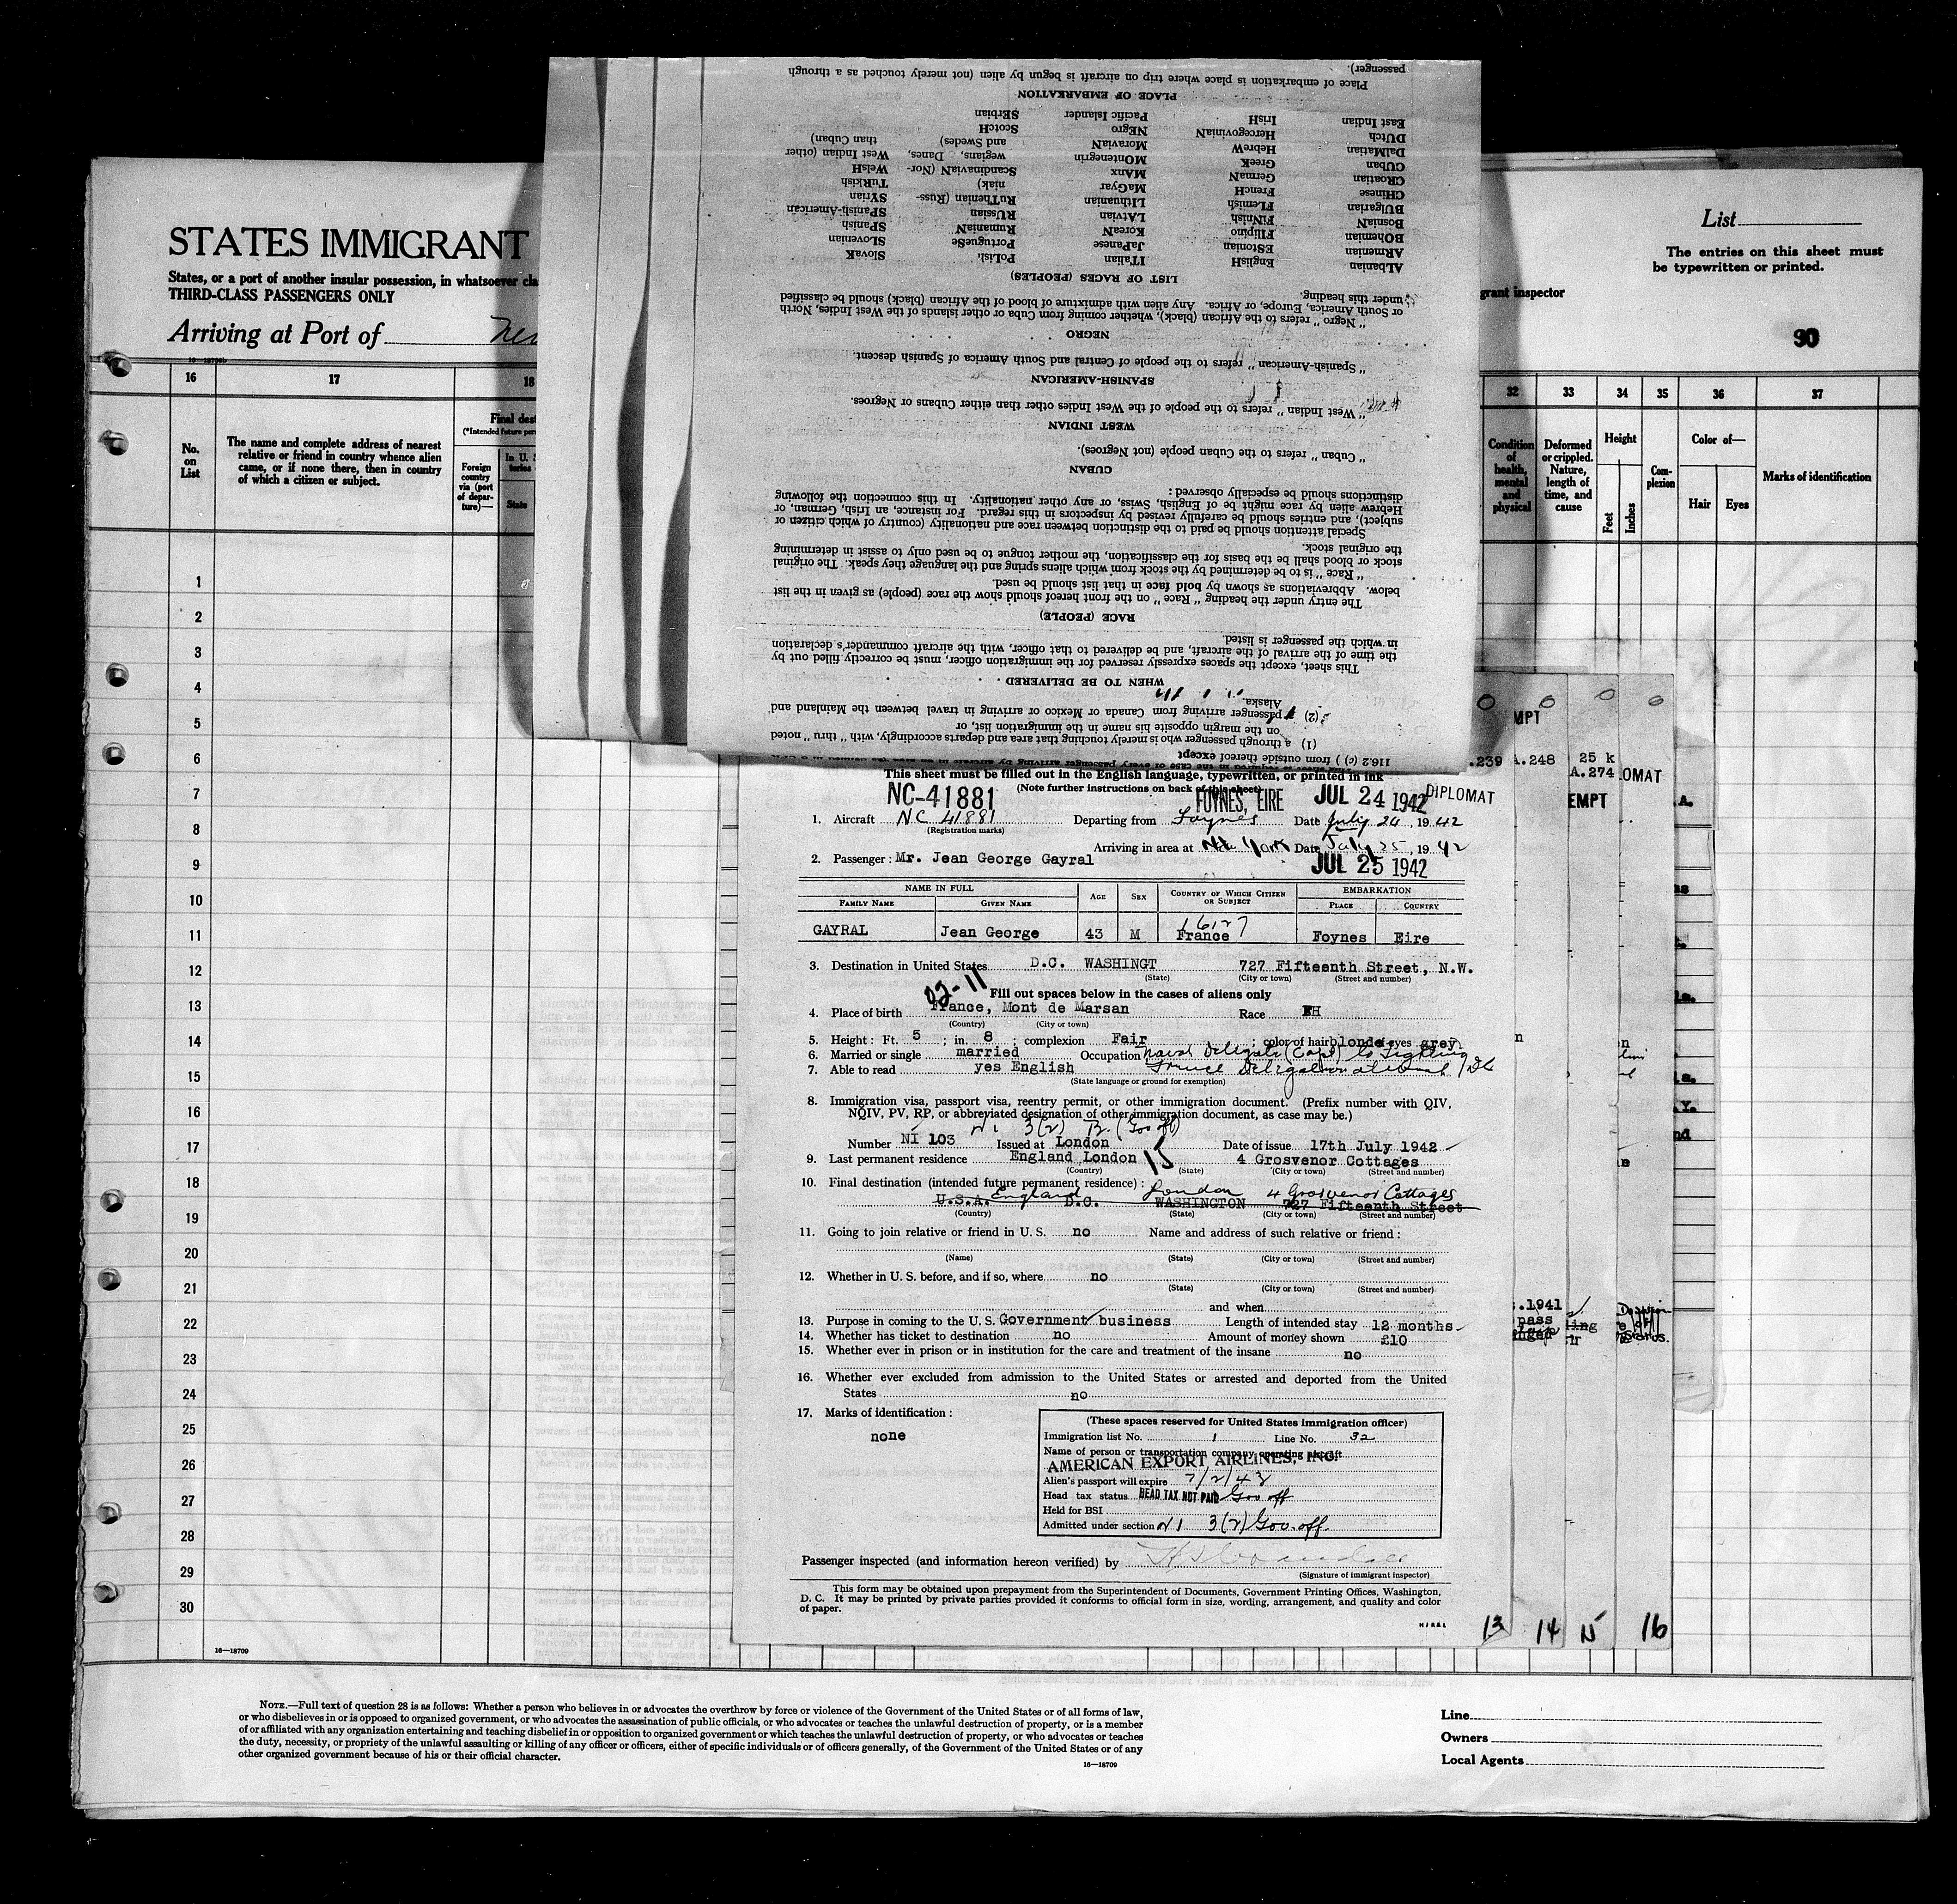 STATES IMMIGRANT
States, or a port of another insular possession, in whatsoever cla
THIRD-CLASS PASSENGERS ONLY
Arriving at Port of
16 17 18
No. on List
The name and complete address of nearest
relative or friend in country whence alien
came, or if none there, then in country
of which a citizen or subject.
Final dest
(*Intended future per
Foreign country via (port of depar-ture)—
In U. S.
State
1
2
3
4
5
6
7
8
9
10
11
12
13
14
15
16
17
18
19
20
21
22
23
24
25
26
27
28
29
30
16—18709
List
The entries on this sheet must
be typewritten or printed.
grant inspector
90
32 33 34 35 36 37
Condition of health, mental and physical
Deformed or crippled. Nature, length of time, and cause
Height
Feet Inches
Com-plexion
Color of—
Hair Eyes
Marks of identification
116.2 (c) ) from outside thereof except
(1) a through passenger who is merely touching that area and departs accordingly, with "thru" noted
on the margin opposite his name in the immigration list, or
(2) passenger arriving from Canada or Mexico or arriving in travel between the Mainland and
Alaska.
WHEN TO BE DELIVERED
This sheet, except the spaces expressly reserved for the immigration officer, must be correctly filled out by
the time of the arrival of the aircraft, and be delivered to that officer, with the aircraft commander's declaration
in which the passenger is listed.
RACE (PEOPLE)
The entry under the heading "Race" on the front hereof should show the race (people) as given in the list
below. Abbreviations as shown by bold face in that list should be used.
"Race" is to be determined by the stock from which aliens spring and the language they speak. The original
stock or blood shall be the basis for the classification, the mother tongue to be used only to assist in determining
the original stock.
Special attention should be paid to the distinction between race and nationality (country of which citizen or
subject), and entries should be carefully revised by inspectors in this regard. For instance, an Irish, German, or
Hebrew alien by race might be of English, Swiss, or any other nationality. In this connection the following
distinctions should be especially observed:
CUBAN
"Cuban" refers to the Cuban people (not Negroes).
WEST INDIAN
"West Indian" refers to the people of the West Indies other than either Cubans or Negroes.
SPANISH-AMERICAN
"Spanish-American" refers to the people of Central and South America of Spanish descent.
NEGRO
"Negro" refers to the African (black), whether coming from Cuba or other islands of the West Indies, North
or South America, Europe, or Africa. Any alien with admixture of blood of the African (black) should be classified
under this heading.
LIST OF RACES (PEOPLES)
Albanian EnglisH ITalian Polish SlovaK
ARmenian EStonian JaPanese PortugueSe SLOvenian
BOhemian FIlipino KoreaN RumaniaN SPanish
BosniaN FiNnish LAtvian RUssian SPanish-American
BUlgarian FLemish LIthuanian RuThenian (Russ- SYrian
CHinese FrencH MaGyar niak) TuRkish
CRoatian GermaN MAnx ScandinaviaN (Nor- WelsH
CUban GreeK MOntenegrin wegians, Danes, West Indian (other
DalMatian HebreW MoraviaN and Swedes) than Cuban)
DUtch HercegoviniaN NEgro ScotcH
East Indian IrisH Pacific Islander SErbian
PLACE OF EMBARKATION
Place of embarkation is place where trip on aircraft is begun by alien (not merely touched as a through
passenger).
This sheet must be filled out in the English language, typewritten, or printed in ink
(Note further instructions on back of this sheet)
NC-41881 FOYNES, EIRE JUL 24 1942 DIPLOMAT
1. Aircraft NC 41881 Departing from Foynes Date July 24, 1942
(Registration marks)
Arriving in area at New York Date July 25, 1942
2. Passenger: Mr. Jean George Gayral JUL 25 1942
NAME IN FULL AGE SEX COUNTRY OF WHICH CITIZEN OR SUBJECT EMBARKATION
FAMILY NAME GIVEN NAME PLACE COUNTRY
16127
GAYRAL Jean George 43 M France Foynes Eire
3. Destination in United States D.C. WASHINGT 727 Fifteenth Street, N.W.
(State) (City or town) (Street and number)
02-11
Fill out spaces below in the cases of aliens only
4. Place of birth France, Mont de Marsan Race FH
(Country) (City or town)
5. Height: Ft. 5; in. 8; complexion Fair; color of hair blonde eyes grey
6. Married or single married Occupation Naval Delegate (Capt) to Fighting
7. Able to read yes English France Delegation at
(State language or ground for exemption)
8. Immigration visa, passport visa, reentry permit, or other immigration document. (Prefix number with QIV,
NQIV, PV, RP, or abbreviated designation of other immigration document, as case may be.)
3(2) (Gov off)
Number NI 103 Issued at London Date of issue 17th July 1942
9. Last permanent residence England London 15 4 Grosvenor Cottages
(Country) (State) (City or town) (Street and number)
10. Final destination (intended future permanent residence):
England London 4 Grosvenor Cottages
U.S.A. D.C. WASHINGTON 727 Fifteenth Street
(Country) (State) (City or town) (Street and number)
11. Going to join relative or friend in U. S. no Name and address of such relative or friend:
(Name) (State) (City or town) (Street and number)
12. Whether in U. S. before, and if so, where no
(State) (City or town) (Street and number)
and when
13. Purpose in coming to the U. S. Government business Length of intended stay 12 months
14. Whether has ticket to destination no Amount of money shown £10
15. Whether ever in prison or in institution for the care and treatment of the insane no
16. Whether ever excluded from admission to the United States or arrested and deported from the United
States no
17. Marks of identification:
none
(These spaces reserved for United States immigration officer)
Immigration list No. 1 Line No. 32
Name of person or transportation company operating aircraft
AMERICAN EXPORT AIRLINES, INC.
Alien's passport will expire 7/2/43
Head tax status HEAD TAX NOT PAID Gov off
Held for BSI
Admitted under section NI 3(2) Gov. off.
Passenger inspected (and information hereon verified) by
(Signature of immigrant inspector)
This form may be obtained upon prepayment from the Superintendent of Documents, Government Printing Offices, Washington,
D. C. It may be printed by private parties provided it conforms to official form in size, wording, arrangement, and quality and color
of paper.
.239 A.248 25 k
A.274 LOMAT
MPT
EMPT
.1941
pass
13 14 15 16
NOTE.—Full text of question 28 is as follows: Whether a person who believes in or advocates the overthrow by force or violence of the Government of the United States or of all forms of law,
or who disbelieves in or is opposed to organized government, or who advocates the assassination of public officials, or who advocates or teaches the unlawful destruction of property, or is a member
of or affiliated with any organization entertaining and teaching disbelief in or opposition to organized government or which teaches the unlawful destruction of property, or who advocates or teaches
the duty, necessity, or propriety of the unlawful assaulting or killing of any officer or officers, either of specific individuals or of officers generally, of the Government of the United States or of any
other organized government because of his or their official character.
16—18709
Line
Owners
Local Agents